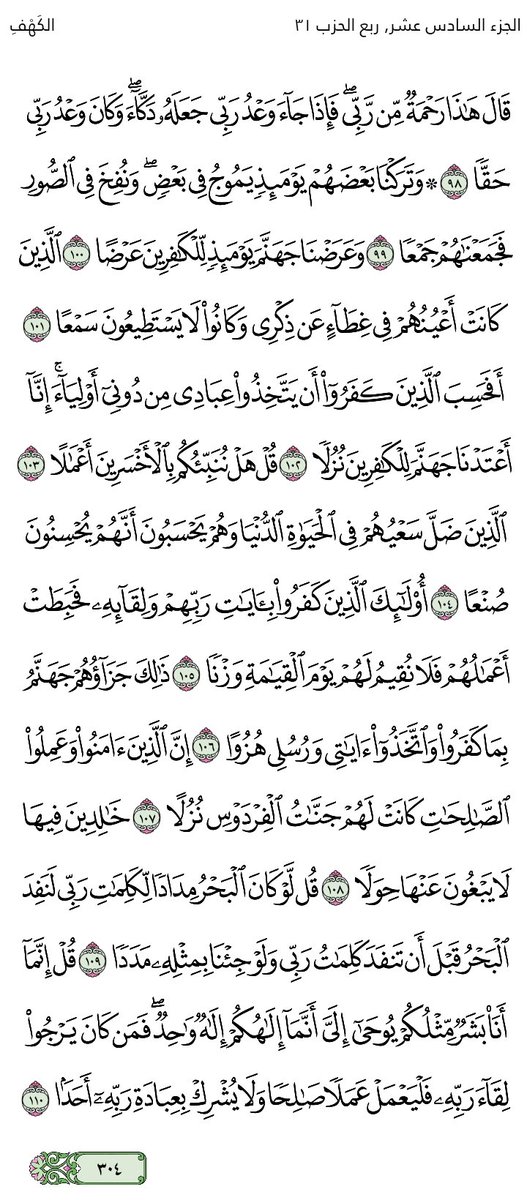 الجزء السادس عشر, ربع الحزب ٣١
الكَهْفِ
قَالَ هَٰذَا رَحْمَةٌ مِّن رَّبِّي ۖ فَإِذَا جَآءَ وَعْدُ رَبِّي جَعَلَهُۥ دَكَّآءَ ۖ وَكَانَ وَعْدُ رَبِّي
حَقًّا ٩٨ ۞ وَتَرَكْنَا بَعْضَهُمْ يَوْمَئِذٍ يَمُوجُ فِي بَعْضٍ ۖ وَنُفِخَ فِي ٱلصُّورِ
فَجَمَعْنَٰهُمْ جَمْعًا ٩٩ وَعَرَضْنَا جَهَنَّمَ يَوْمَئِذٍ لِّلْكَٰفِرِينَ عَرْضًا ١٠٠ ٱلَّذِينَ
كَانَتْ أَعْيُنُهُمْ فِي غِطَآءٍ عَن ذِكْرِي وَكَانُوا۟ لَا يَسْتَطِيعُونَ سَمْعًا ١٠١
أَفَحَسِبَ ٱلَّذِينَ كَفَرُوٓا۟ أَن يَتَّخِذُوا۟ عِبَادِي مِن دُونِيٓ أَوْلِيَآءَ ۚ إِنَّآ
أَعْتَدْنَا جَهَنَّمَ لِلْكَٰفِرِينَ نُزُلًا ١٠٢ قُلْ هَلْ نُنَبِّئُكُم بِٱلْأَخْسَرِينَ أَعْمَٰلًا ١٠٣
ٱلَّذِينَ ضَلَّ سَعْيُهُمْ فِي ٱلْحَيَوٰةِ ٱلدُّنْيَا وَهُمْ يَحْسَبُونَ أَنَّهُمْ يُحْسِنُونَ
صُنْعًا ١٠٤ أُو۟لَٰٓئِكَ ٱلَّذِينَ كَفَرُوا۟ بِـَٔايَٰتِ رَبِّهِمْ وَلِقَآئِهِۦ فَحَبِطَتْ
أَعْمَٰلُهُمْ فَلَا نُقِيمُ لَهُمْ يَوْمَ ٱلْقِيَٰمَةِ وَزْنًا ١٠٥ ذَٰلِكَ جَزَآؤُهُمْ جَهَنَّمُ
بِمَا كَفَرُوا۟ وَٱتَّخَذُوٓا۟ ءَايَٰتِي وَرُسُلِي هُزُوًا ١٠٦ إِنَّ ٱلَّذِينَ ءَامَنُوا۟ وَعَمِلُوا۟
ٱلصَّٰلِحَٰتِ كَانَتْ لَهُمْ جَنَّٰتُ ٱلْفِرْدَوْسِ نُزُلًا ١٠٧ خَٰلِدِينَ فِيهَا
لَا يَبْغُونَ عَنْهَا حِوَلًا ١٠٨ قُل لَّوْ كَانَ ٱلْبَحْرُ مِدَادًا لِّكَلِمَٰتِ رَبِّي لَنَفِدَ
ٱلْبَحْرُ قَبْلَ أَن تَنفَدَ كَلِمَٰتُ رَبِّي وَلَوْ جِئْنَا بِمِثْلِهِۦ مَدَدًا ١٠٩ قُلْ إِنَّمَآ
أَنَا۠ بَشَرٌ مِّثْلُكُمْ يُوحَىٰٓ إِلَيَّ أَنَّمَآ إِلَٰهُكُمْ إِلَٰهٌ وَٰحِدٌ ۖ فَمَن كَانَ يَرْجُوا۟
لِقَآءَ رَبِّهِۦ فَلْيَعْمَلْ عَمَلًا صَٰلِحًا وَلَا يُشْرِكْ بِعِبَادَةِ رَبِّهِۦٓ أَحَدًۢا ١١٠
٣٠٤